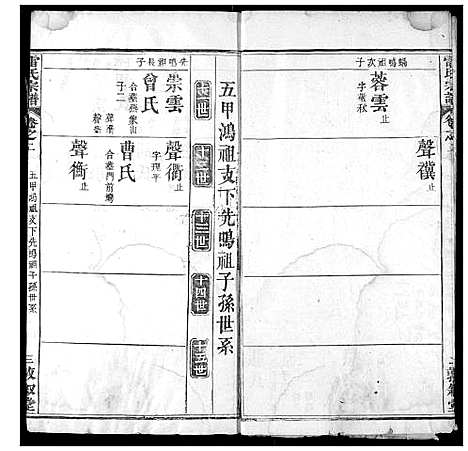 雷氏宗譜
卷之二
二 敦敘堂
鳴祖次子
蓉雲止
聲禩止
五甲鴻祖支下先鳴祖子孫世系
十二世
十三世
十四世
十五世
鳴祖長子
崇雲
曾氏
子二
聲衢
聲衡
聲衢止
字理平
曹氏
合葬門前塢
聲衡止
雷氏宗譜
卷之二
五甲鴻祖支下先鳴祖子孫世系
三 敦敘堂